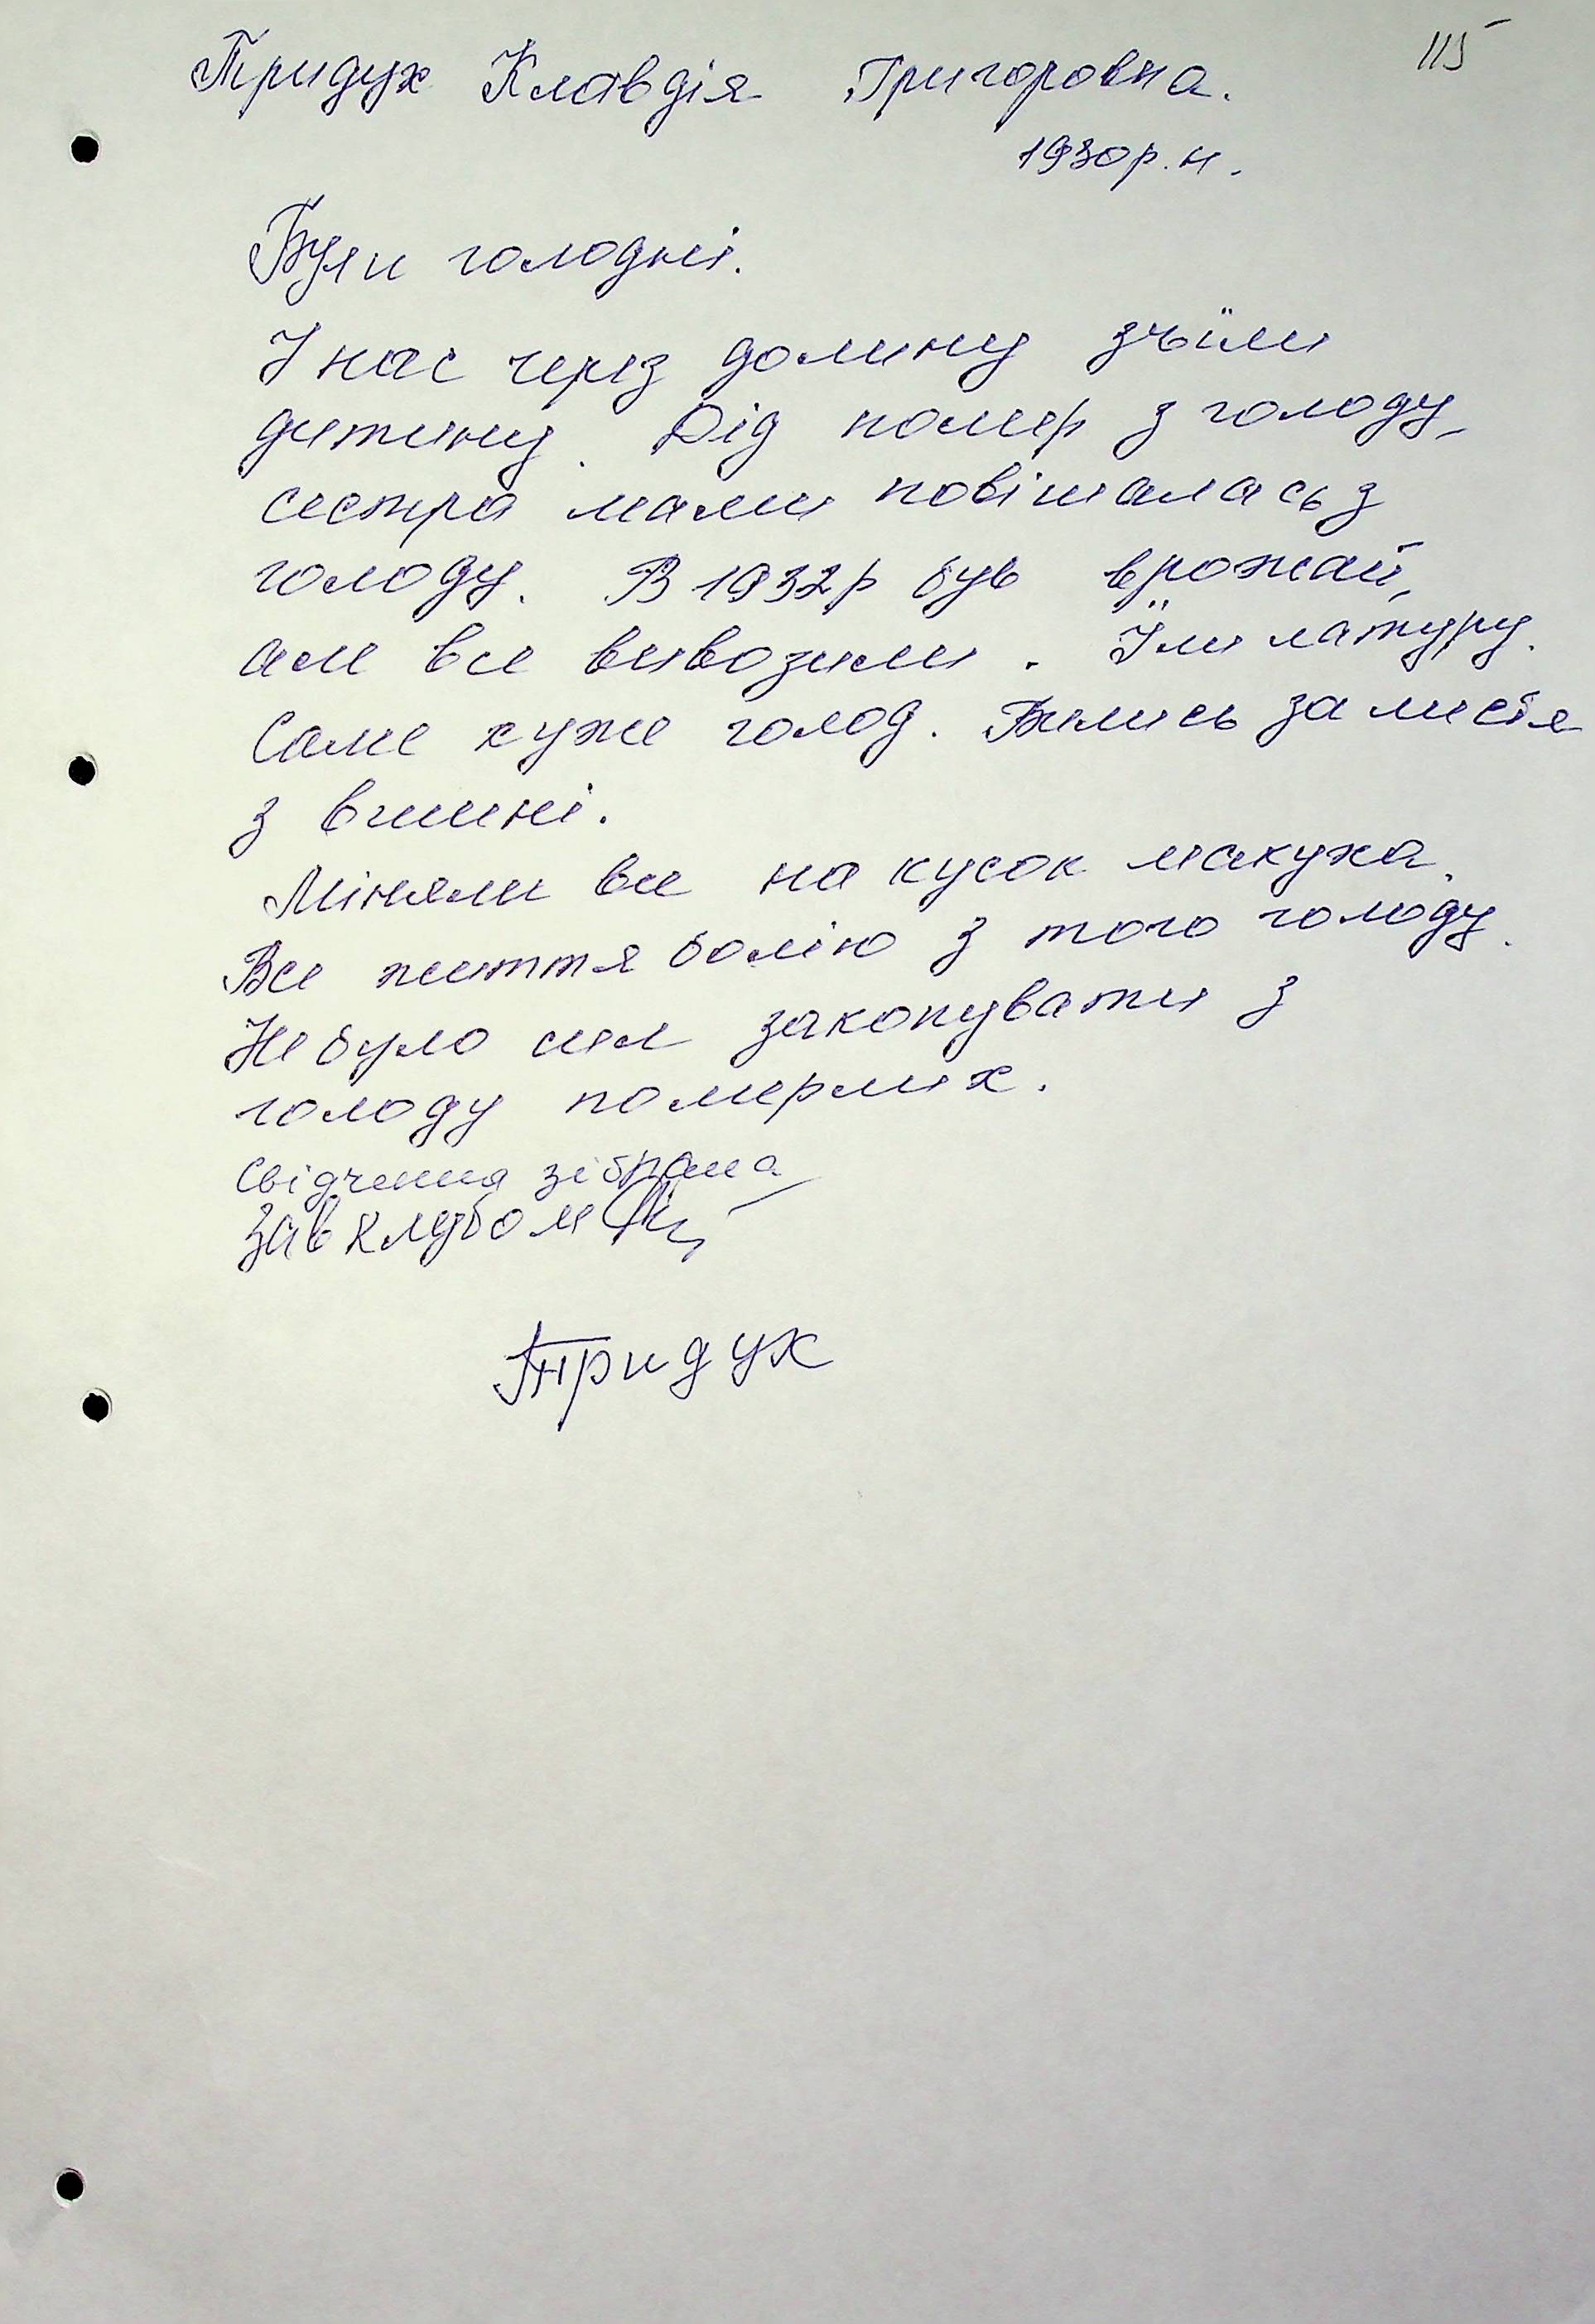 115
Тридух Клавдія Григоровна.
1930р.н.
Були голодні.
У нас через долину зъїли
дитину. Дід помер з голоду,
сестра мами повішалась з
голоду. В 1932р був врожай,
але все вивозили. Їли латуру.
Саме хуже голод. Бились за листя
з вишні.
Міняли все на кусок макуха.
Все життя болію з того голоду.
Не було сил закопувати з
голоду померлих.
Свідчення зібрана
Зав клубом
Тридух